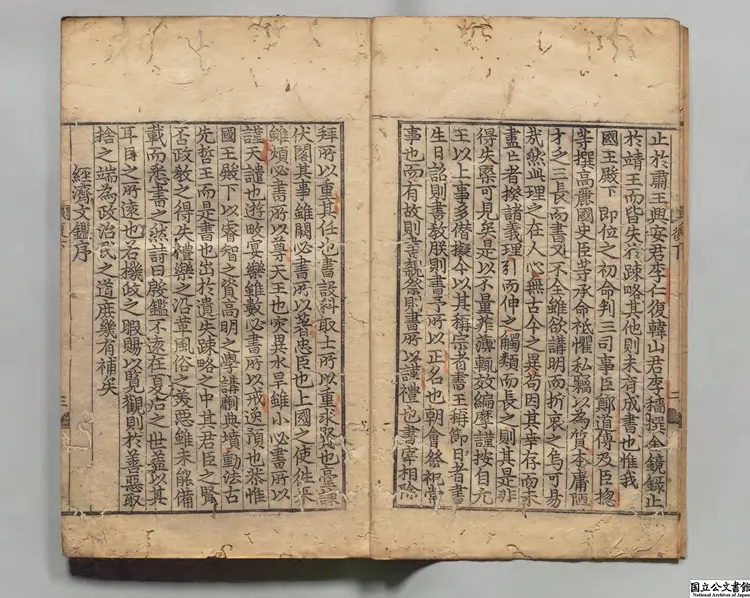 止於肅王興安君李仁復韓山君李穡撰金鏡錄止
於靖王而皆失於疎略其他則未有成書也惟我
國王殿下即位之初命判三司事臣鄭道傳及臣摠
等撰高麗國史臣等承命祗懼私竊以為質本庸陋
才乏三長而書又不全雖欲講明而折衷之烏可易
哉然此理之在人心無古今之異苟因其幸存而未
盡亡者揆諸義理引而伸之觸類而長之則其是非
得失槩可見矣是以不量荒淺輒效編摩謹按自元
王以上事多僭擬今以其稱宗者書王稱節日者書
生日詔則書教朕則書予所以正名也朝會祭祀常
事也而有故則書親祭則書所以謹禮也書宰相除
拜所以重其任也書設科取士所以重求賢也臺諫
伏閤其事雖闕必書所以著忠臣也上國之使往來
雖頻必書所以尊天王也灾異水旱雖小必書所以
謹天譴也遊畋宴樂雖數必書所以戒逸豫也恭惟
國王殿下以睿智之資高明之學講劘典墳動法古
先哲王而是書也出於遺失疎略之中其君臣之賢
否政教之得失禮樂之沿革風俗之美惡雖未能備
載而悉書之然詩曰殷鑑不遠在夏后之世蓋以其
耳目之所逮也若機政之暇賜以覽觀則於善惡取
捨之端為政治民之道庶幾有補矣
經濟文鑑序
国立公文書館
National Archives of Japan